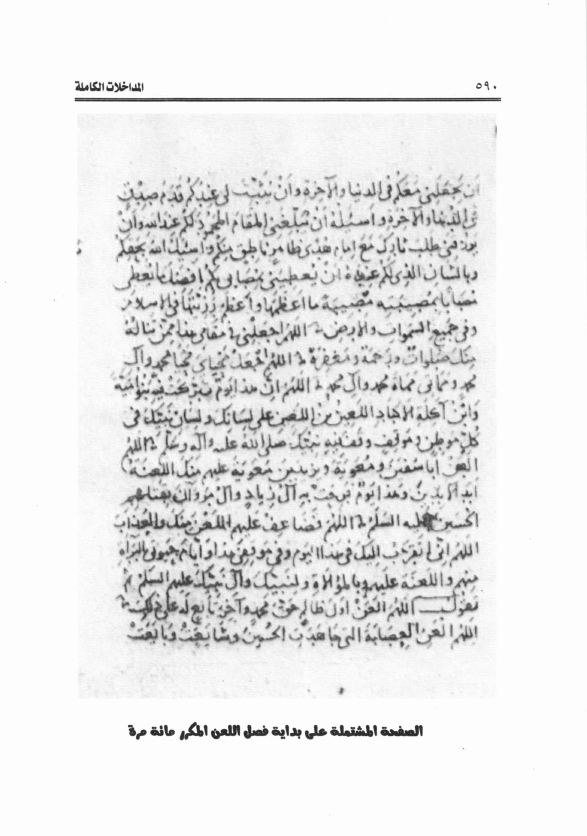 ٥٩٠
المداخلات الكاملة
ان يجعلني معكم في الدنيا والآخرة وان يثبت لي عندكم قدم صدق
في الدنيا والآخرة واسئله ان يبلغني المقام المحمود لكم عند الله وان
يرزقني طلب ثاركم مع امام هدى ظاهر ناطق منكم واسئل الله بحقكم
وبالشان الذي لكم عنده ان يعطيني بمصابي بكم افضل ما يعطي
مصابا بمصيبته مصيبة ما اعظمها واعظم رزيتها في الاسلام
وفي جميع السموات والارض اللهم اجعلني في مقامي هذا ممن تناله
منك صلوات ورحمة ومغفرة اللهم اجعل محياي محيا محمد وآل
محمد ومماتي ممات محمد وآل محمد اللهم ان هذا يوم تبركت فيه بنو امية
وابن آكلة الاكباد اللعين بن اللعين على لسانك ولسان نبيك في
كل موطن وموقف وقف فيه نبيك صلى الله عليه وآله اللهم
العن ابا سفين ومعوية ويزيد بن معوية عليهم منك اللعنة
ابد الآبدين وهذا يوم فرحت به آل زياد وآل مروان بقتلهم
الحسين عليه السلم اللهم فضاعف عليهم اللعن منك والعذاب
اللهم اني اتقرب اليك في هذا اليوم وفي موقفي هذا وايام حيوتي بالبرآة
منهم واللعنة عليهم وبالموالاة لنبيك وآل نبيك عليهم السلم
تقول اللهم العن اول ظالم ظلم حق محمد وآخر تابع له على ذلك
اللهم العن العصابة التي جاهدت الحسين وشايعت وبايعت
الصفحة المشتملة على بداية فصل اللعن المكرر مائة مرة